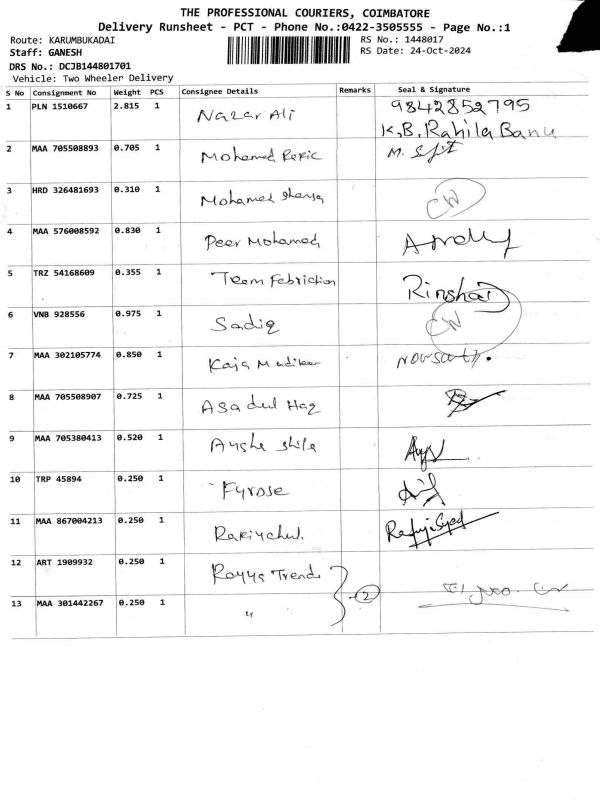 THE PROFESSIONAL COURIERS, COIMBATORE
Delivery Runsheet - PCT - Phone No.:0422-3505555 - Page No.:1
Route: KARUMBUKADAI RS No.: 1448017
Staff: GANESH RS Date: 24-Oct-2024
DRS No.: DCJB144801701
Vehicle: Two Wheeler Delivery
S No Consignment No Weight PCS Consignee Details Remarks Seal & Signature
1 PLN 1510667 2.815 1 Nazar Ali 9842852795
K.B. Rahila Banu
2 MAA 705508893 0.705 1 Mohamed
3 HRD 326481693 0.310 1 Mohamed CW
4 MAA 576008592 0.830 1 Peer Mohamed
5 TRZ 54168609 0.355 1 Team Febriction Rinshad
6 VNB 928556 0.975 1 Sadiq CW
7 MAA 302105774 0.850 1 Kaja
8 MAA 705508907 0.725 1 Asadul Haq
9 MAA 705380413 0.520 1 Aysha
10 TRP 45894 0.250 1 Fyrose
11 MAA 867004213 0.250 1
12 ART 1909932 0.250 1 Trends
13 MAA 301442267 0.250 1 " 2